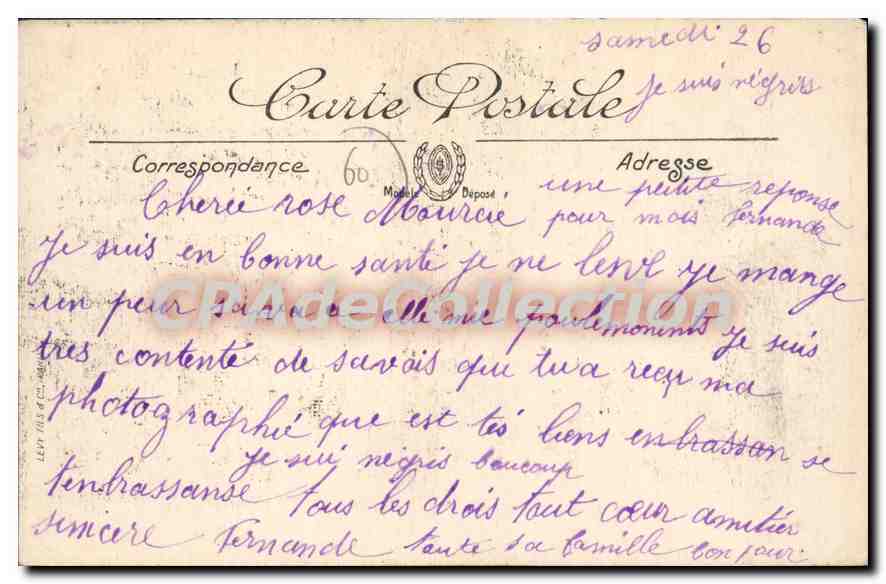 samedi 26
je suis négris
Carte Postale
Correspondance
60
Modèle Déposé
Adresse
une petite reponse
pour mois fernande
Cherée rose Mourcie
Je suis en bonne santé je ne levé je mange
un peur sava elle mie parlemonents je suis
CPAdeCollection
très contenté de savois que tu a reçu ma
photographié que est tés biens enbrassan se
je sui négris boucoup
tenbrassanse tous les drois tout cœur amitier
simcere Fernande toute sa famille bonjour
LEVY FILS & Cie